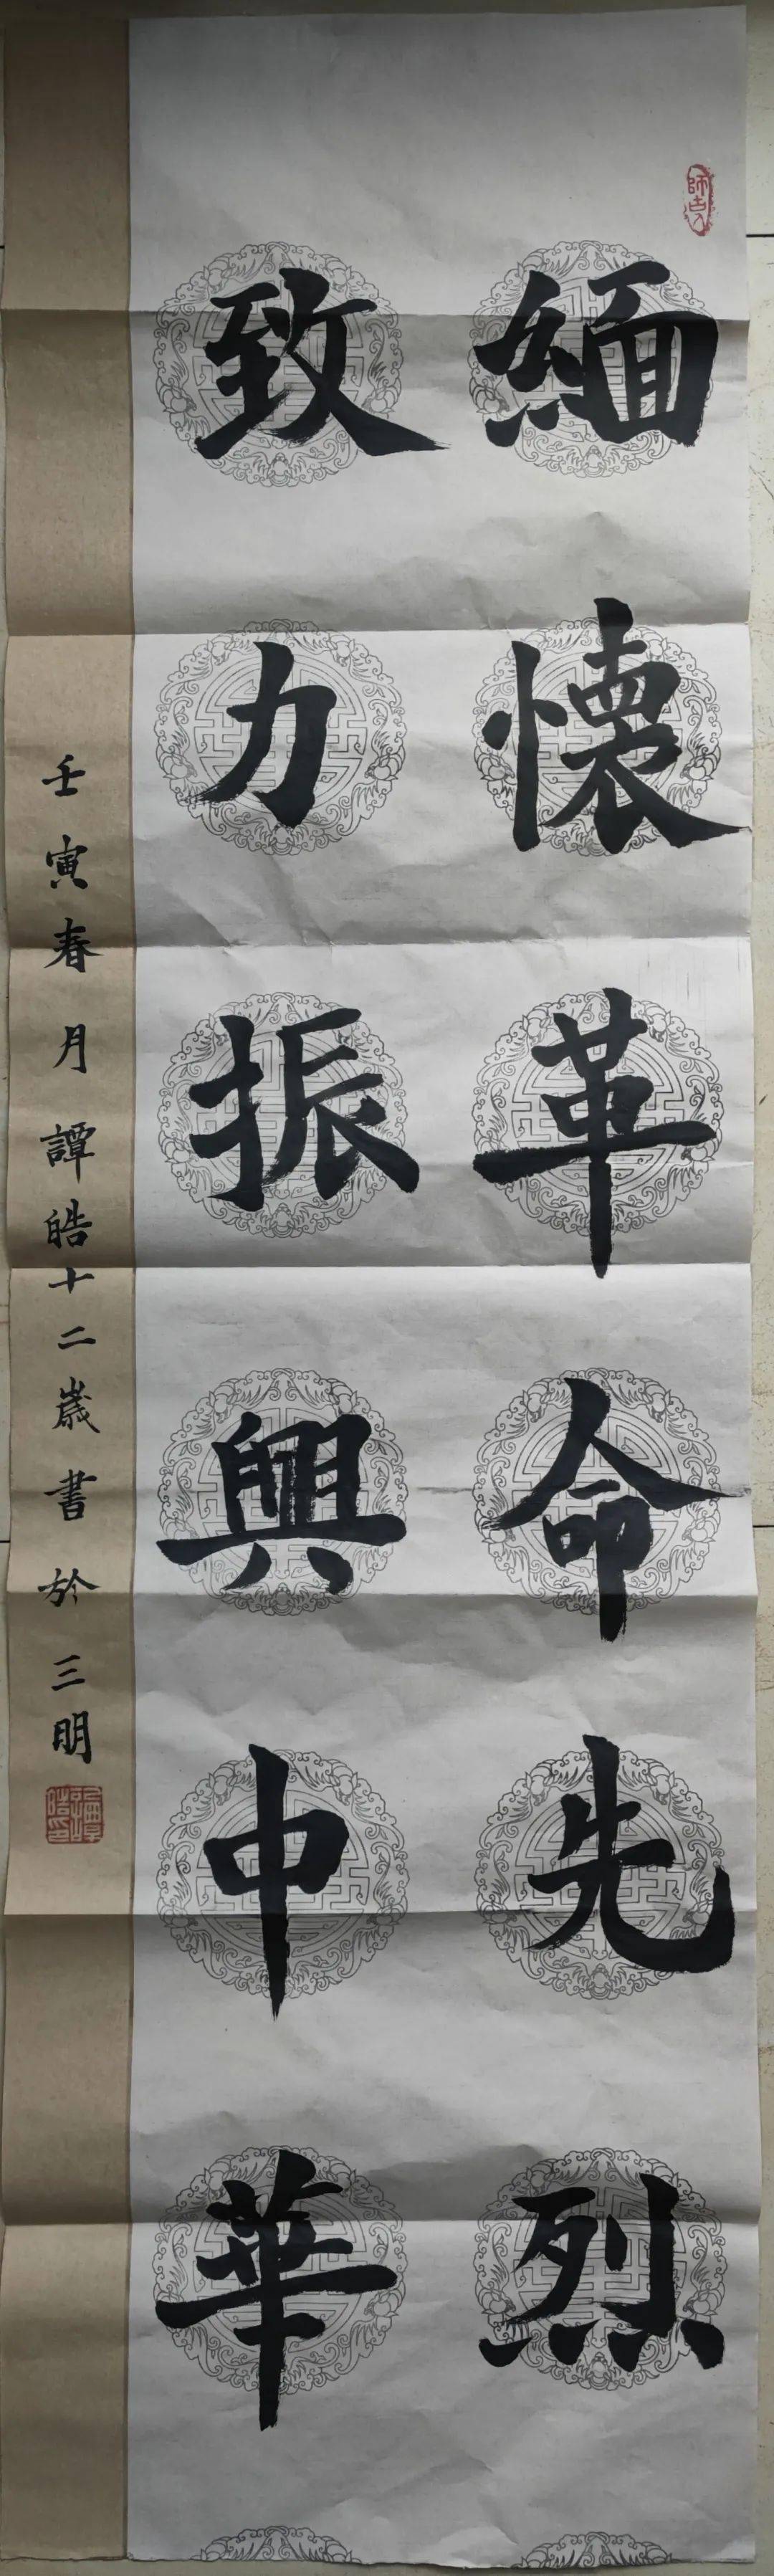 師古人
緬懷革命先烈
致力振興中華
壬寅春月譚皓十二歲書於三明
譚皓印